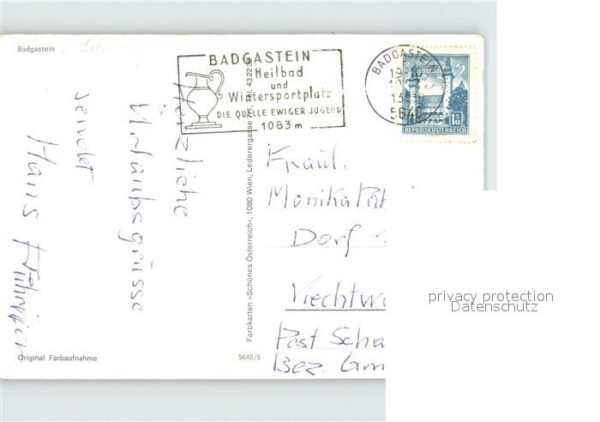 Badgastein
BADGASTEIN
Heilbad
und
Wintersportplatz
DIE QUELLE EWIGER JUGEND
1083 m
BADGASTEIN
19-10
5640
REPUBLIK ÖSTERREICH
Herzliche
Urlaubsgrüsse
sendet
Hans
Fräul.
Monika
Dorf
Viechtw
Post Scha
Bez. Gm
Farbkarten »Schönes Österreich«, 1080 Wien, Lederergasse
Original Farbaufnahme
5640/5
privacy protection
Datenschutz